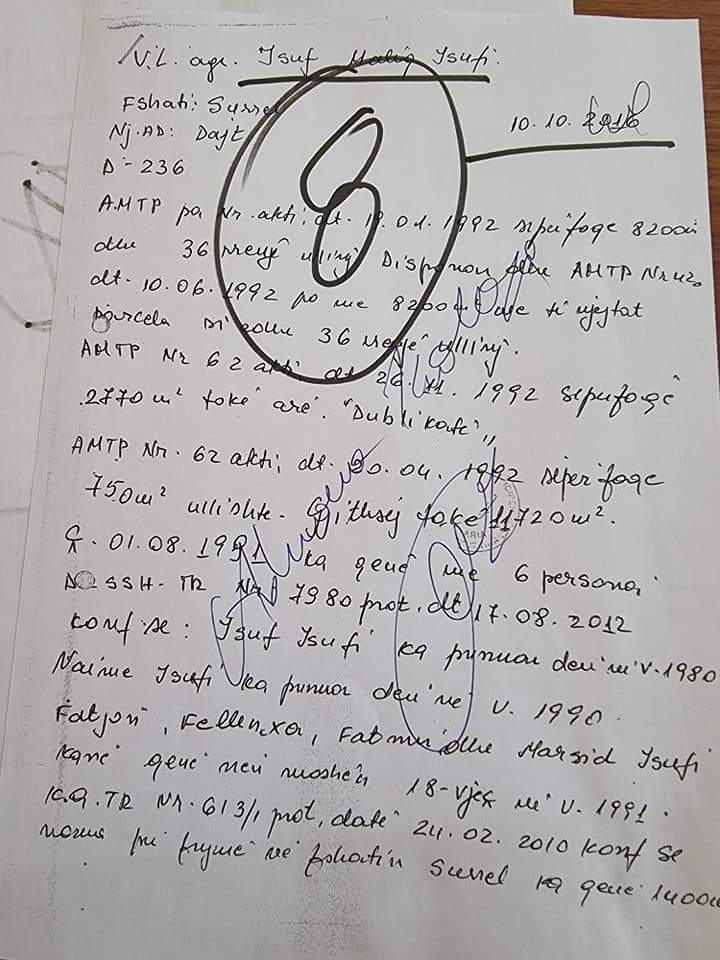 V.L. agr. Isuf Maliq Isufi.
Fshati: Surrel
Nj.AD: Dajt
8
10.10.2016
D-236
AMTP pa Nr. akti, dt. 19.01.1992 sipërfaqe 8200m
dhe 36 rrënjë ullinj Disponon dhe AMTP Nr
dt. 10.06.1992 po me 8200m² me të njejtat
parcela si edhe 36 rrënjë ullinj.
AMTP Nr 62 akti, dt 26.11.1992 sipërfaqe
2770 m² tokë arë. "Dublikatë"
AMTP Nr. 62 akti, dt. 20.04.1992 sipërfaqe
750m² ullishte. Gjithsej tokë 11720m².
Ç. 01.08.1991 ka qenë me 6 persona
D SSH-TR Nr 7980 prot, dt 17.08.2012
konf. se: Isuf Isufi ka punuar deri në v. 1980
Naime Isufi ka punuar deri në v. 1990.
Fatjon, Fellenxa, Fatmir dhe Marsid Isufi
kanë qenë nën moshën 18-vjeç në v. 1991.
K.Q.TR Nr. 613/1 prot, datë 24.02.2010 konf se
norma për frymë në fshatin Surrel ka qenë 1400m